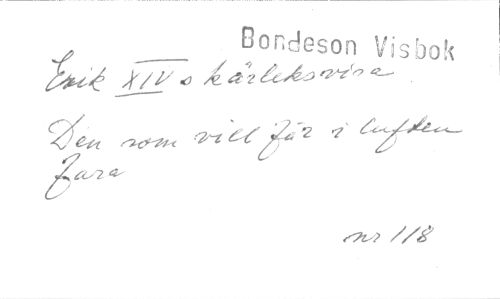 Bondeson Visbok
Erik XIV s kärleksvisa
Den som vill får i luften
fara
nr 118